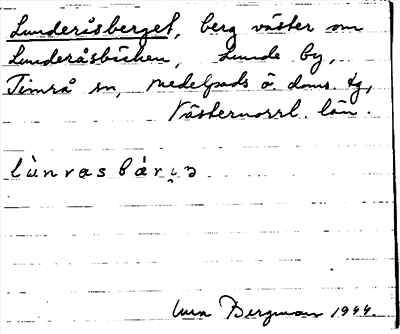 Lunderåsberget, berg väster om
Lunderåsbäcken, Lunde by,
Timrå sn, Medelpads ö. doms. tg,
Västernorrl. län.
lùnrasbárɩ̯ə
Bergman 1944.